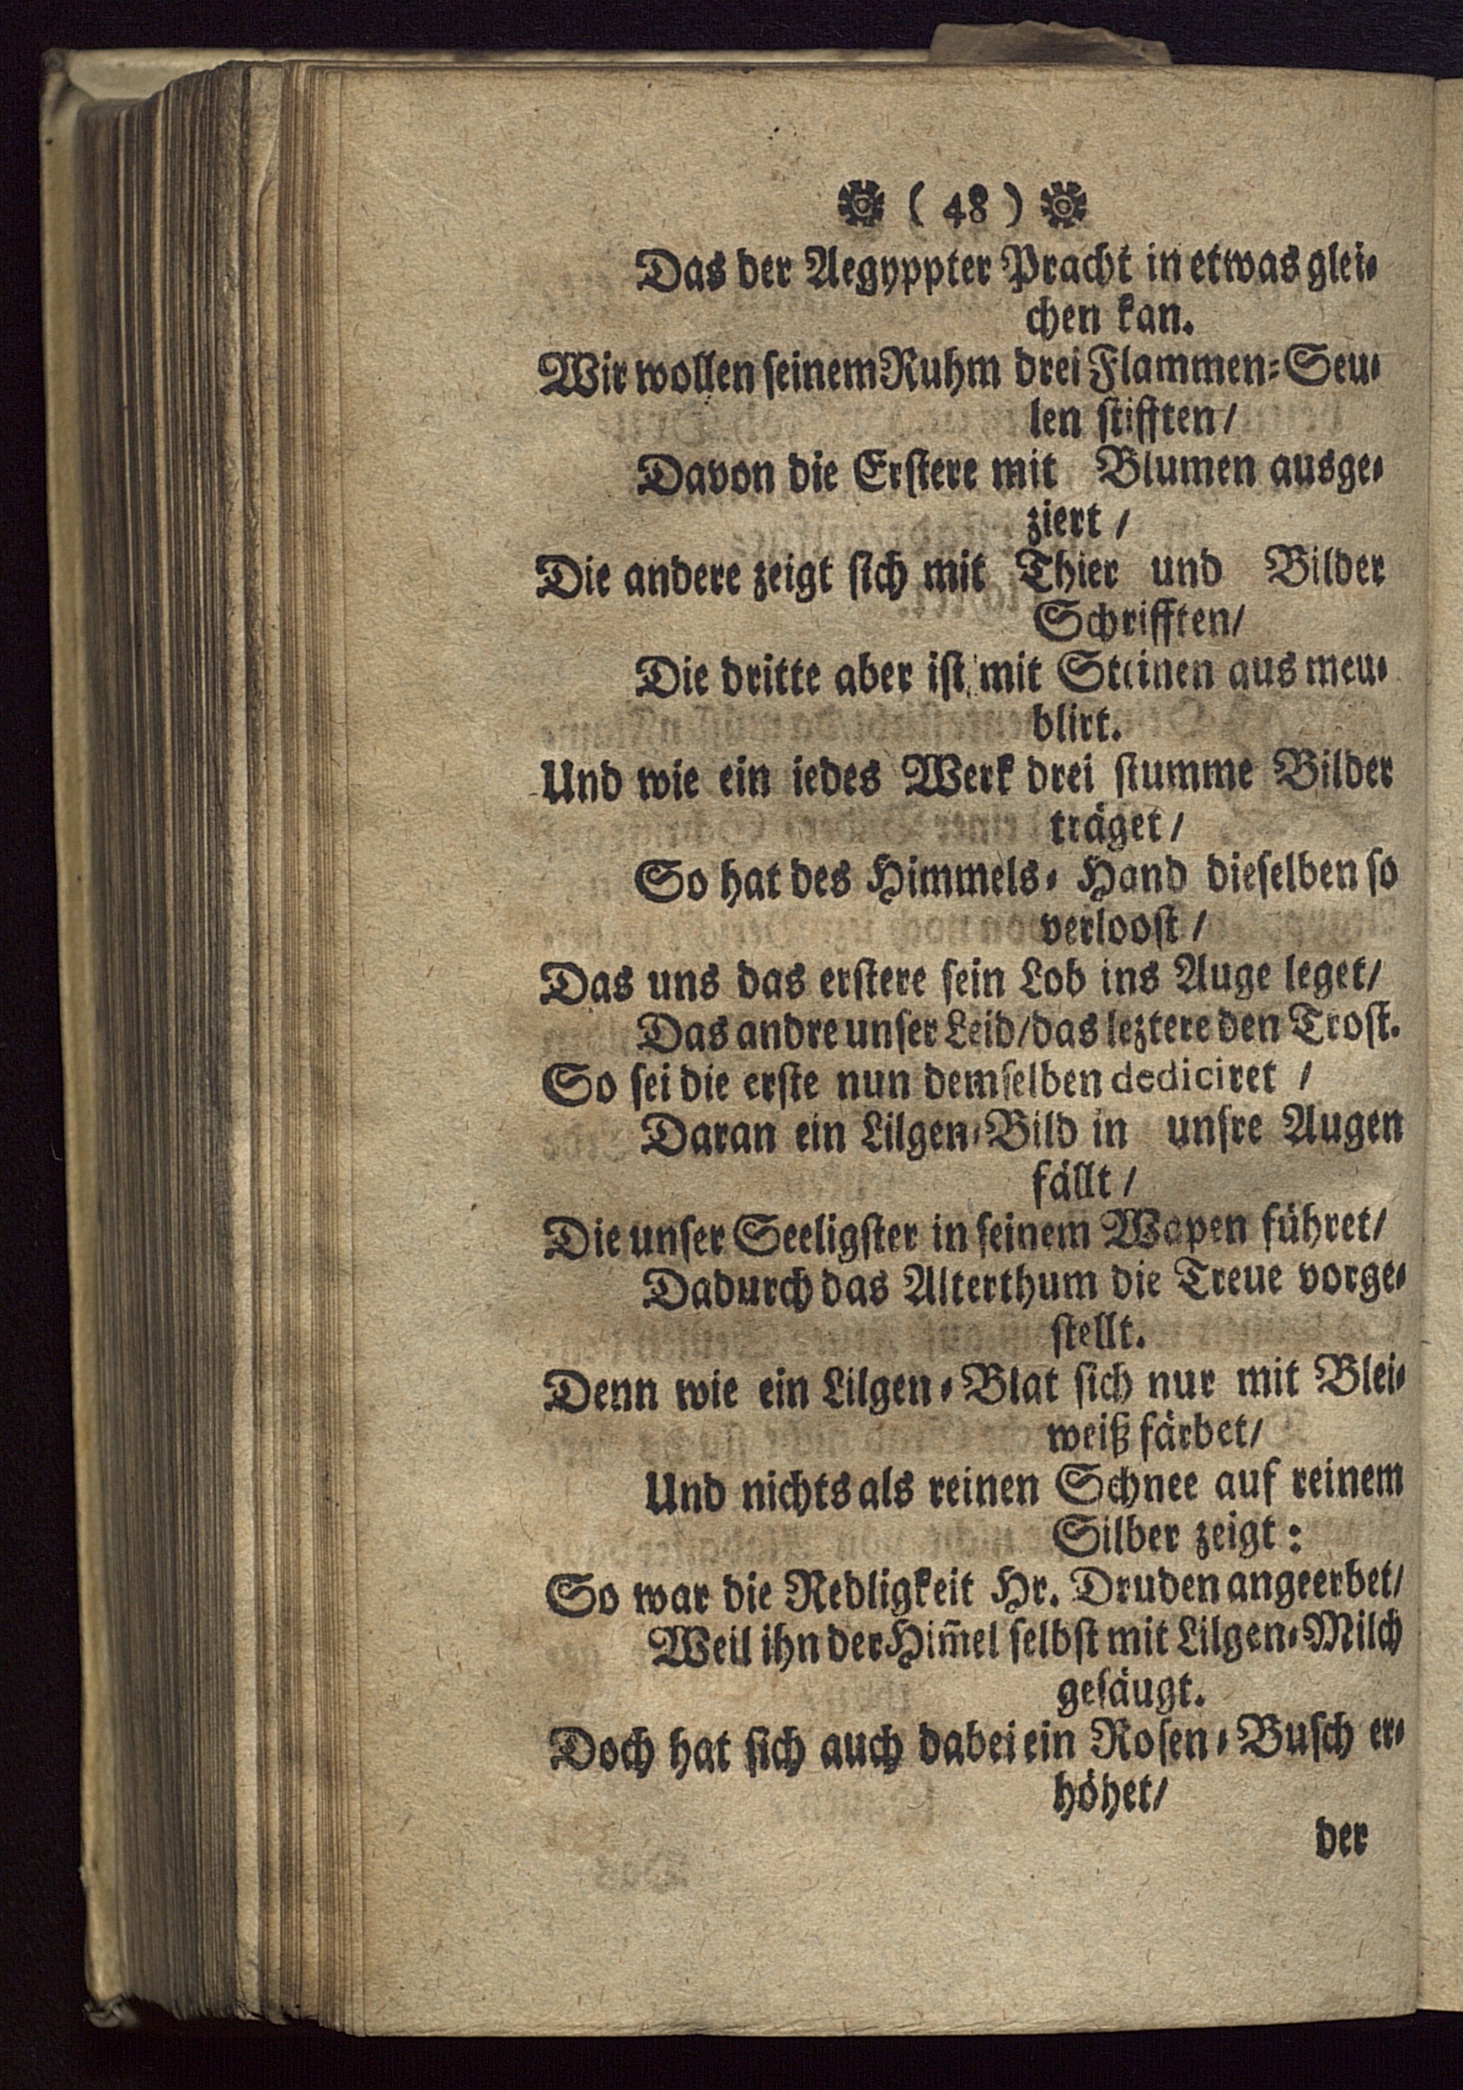 ( 48 )
Das der Aegyppter Pracht in etwas glei-
chen kan.
Wir wollen seinem Ruhm drei Flammen-Seu-
len stifften/
Davon die Erstere mit Blumen ausge-
ziert /
Die andere zeigt sich mit Thier und Bilder
Schrifften/
Die dritte aber ist mit Steinen aus meu-
blirt.
Und wie ein iedes Werk drei stumme Bilder
träget /
So hat des Himmels- Hand dieselben so
verloost /
Das uns das erstere sein Lob ins Auge leget/
Das andre unser Leid/das leztere den Trost.
So sei die erste nun demselben dediciret /
Daran ein Lilgen-Bild in unsre Augen
fällt /
Die unser Seeligster in seinem Wapen führet/
Dadurch das Alterthum die Treue vorge-
stellt.
Denn wie ein Lilgen-Blat sich nur mit Blei-
weiß färbet/
Und nichts als reinen Schnee auf reinem
Silber zeigt:
So war die Redligkeit Hr. Druden angeerbet/
Weil ihn der Him̃el selbst mit Lilgen-Milch
gesäugt.
Doch hat sich auch dabei ein Rosen-Busch er-
höhet/
der